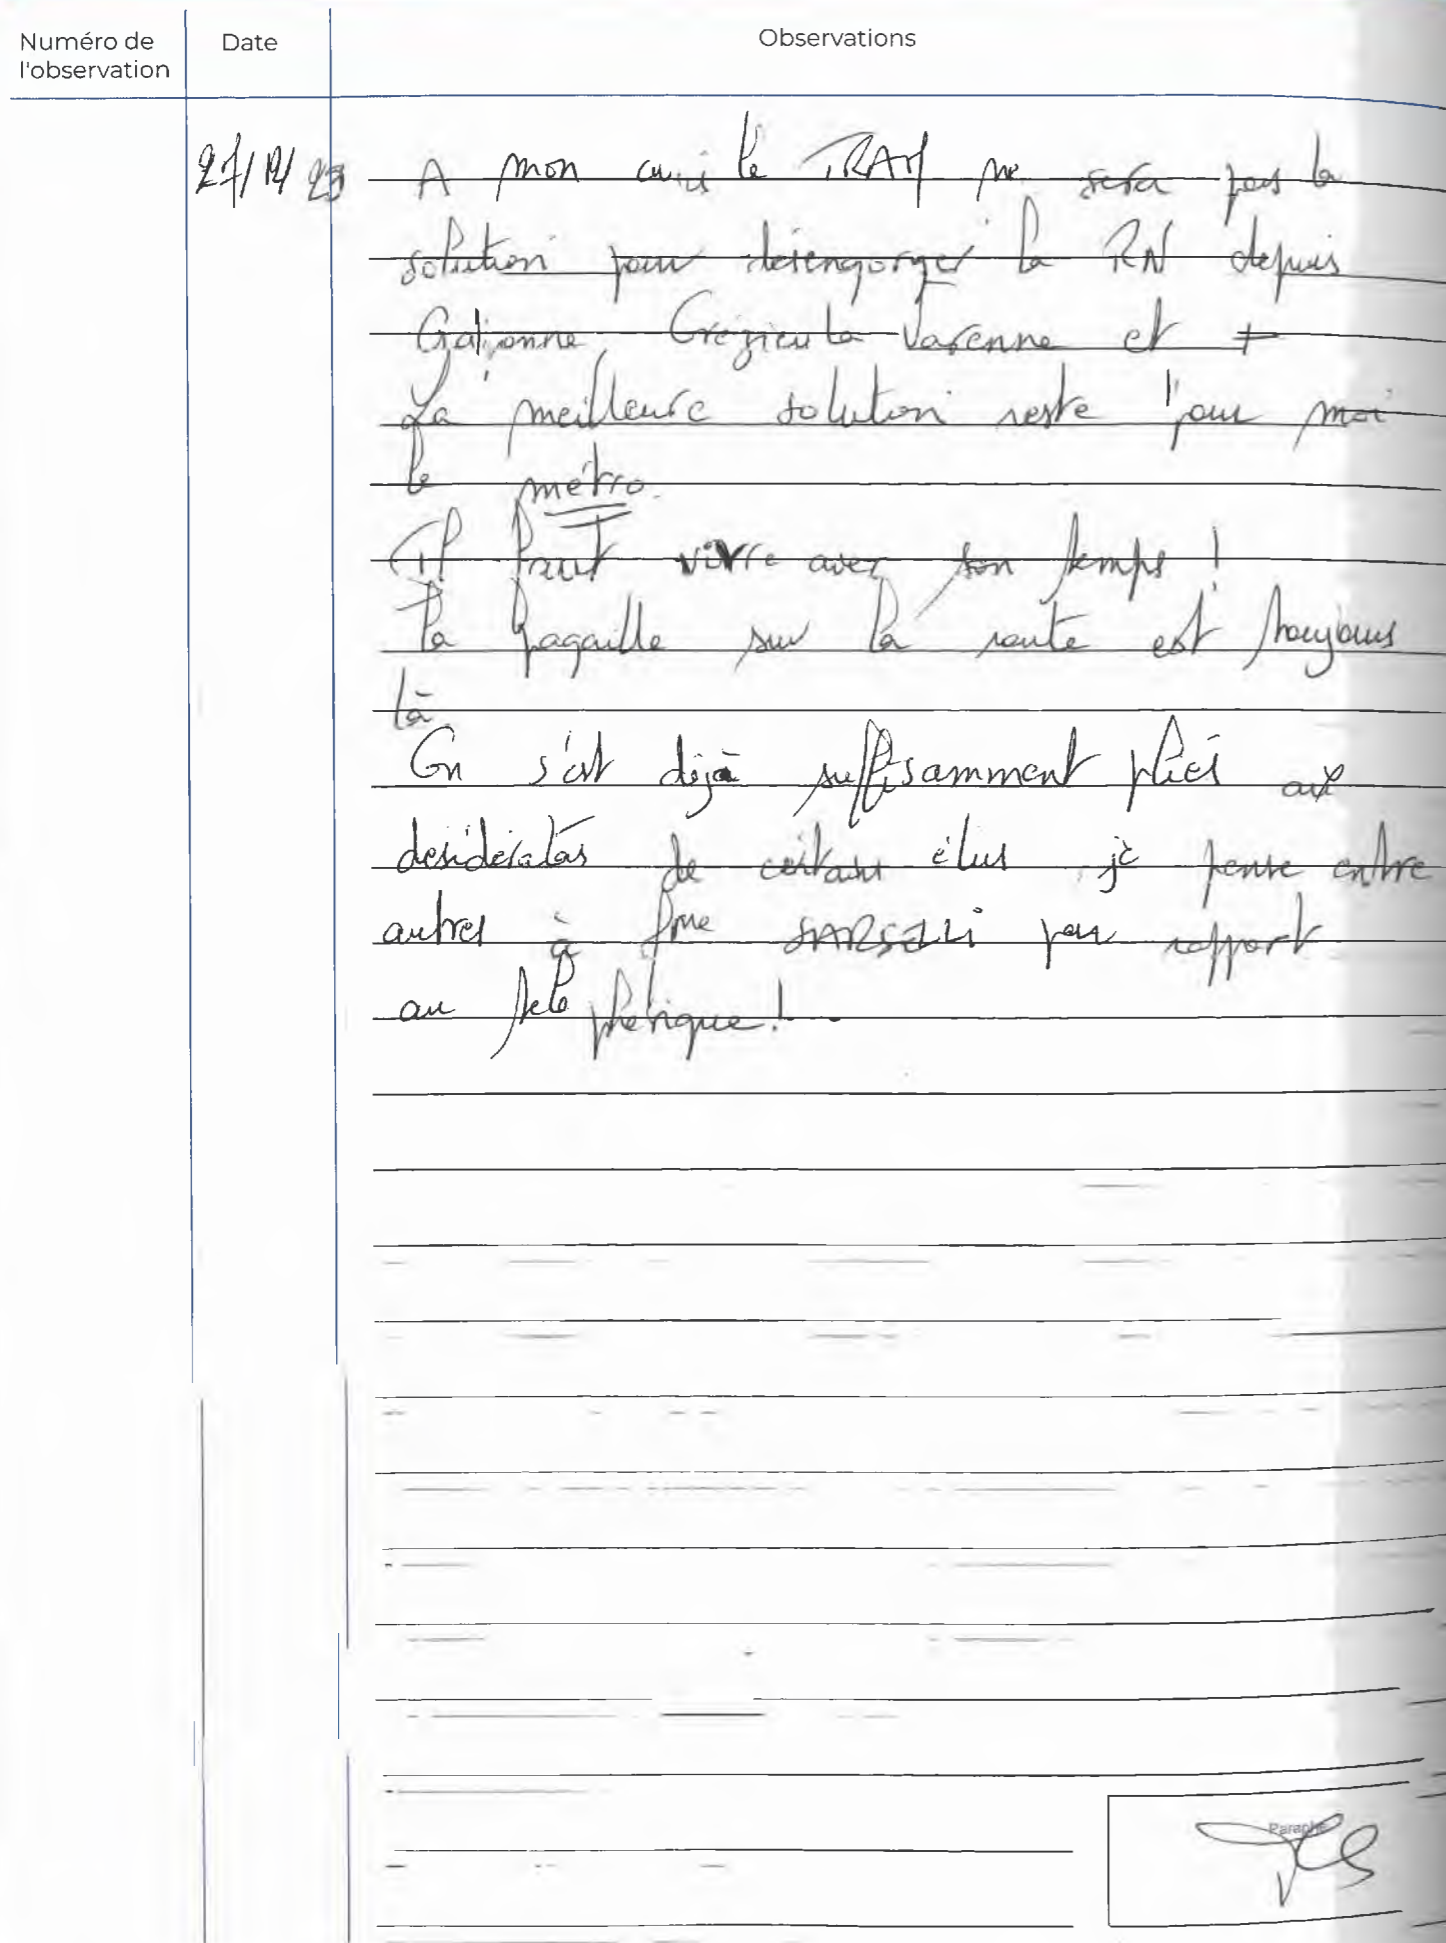 Numéro de
l'observation
Date
Observations
27/12/23 A mon avis le TRAM ne sera pas la
solution pour désengorger la RN depuis
Grézieu la Varenne et +
La meilleure solution reste pour moi
le métro.
Il faut vivre avec son temps !
la pagaille sur la route est toujours
là
On s'est déjà suffisamment pliés aux
desideratas de certains élus je pense entre
autres à Mme SARSELLI par rapport
au téléphérique !
Paraphe